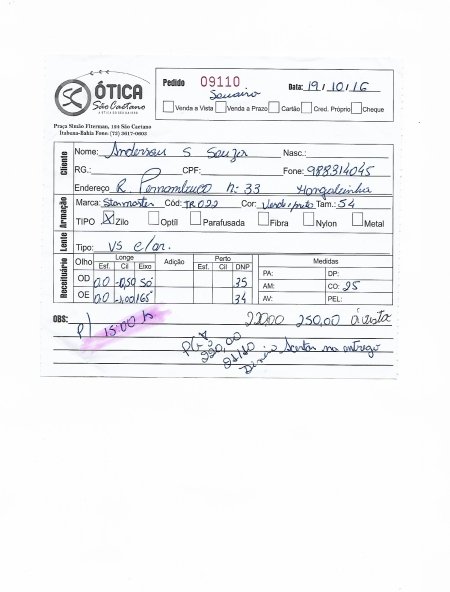 ÓTICA
São Caetano
Praça Simão Fiterman, 194 São Caetano
Itabuna-Bahia Fone: (73) 3617-0603
Pedido 09110 Data: 19/10/16
Venda a Vista Venda a Prazo Cartão Cred. Próprio Cheque
Cliente
Nome: Anderson S Souza Nasc.:
RG.: CPF: Fone: 988314045
Endereço R. Pernambuco n: 33
Armação
Marca: Starmaster Cód: TR022 Cor: Verde/preto Tam.: 54
TIPO X Zilo Optil Parafusada Fibra Nylon Metal
Lente
Tipo: VS c/ar.
Receituário
Olho Longe Adição Perto Medidas
Esf. Cil Eixo Esf. Cil DNP
PA: DP:
OD 0,0 -0,50 50 35 AM: CO: 25
OE 0,0 -1,00 165 34 AV: PEL:
OBS: p/ 15:00 hs 250,00 á vista
220,00
21/10
na entrega